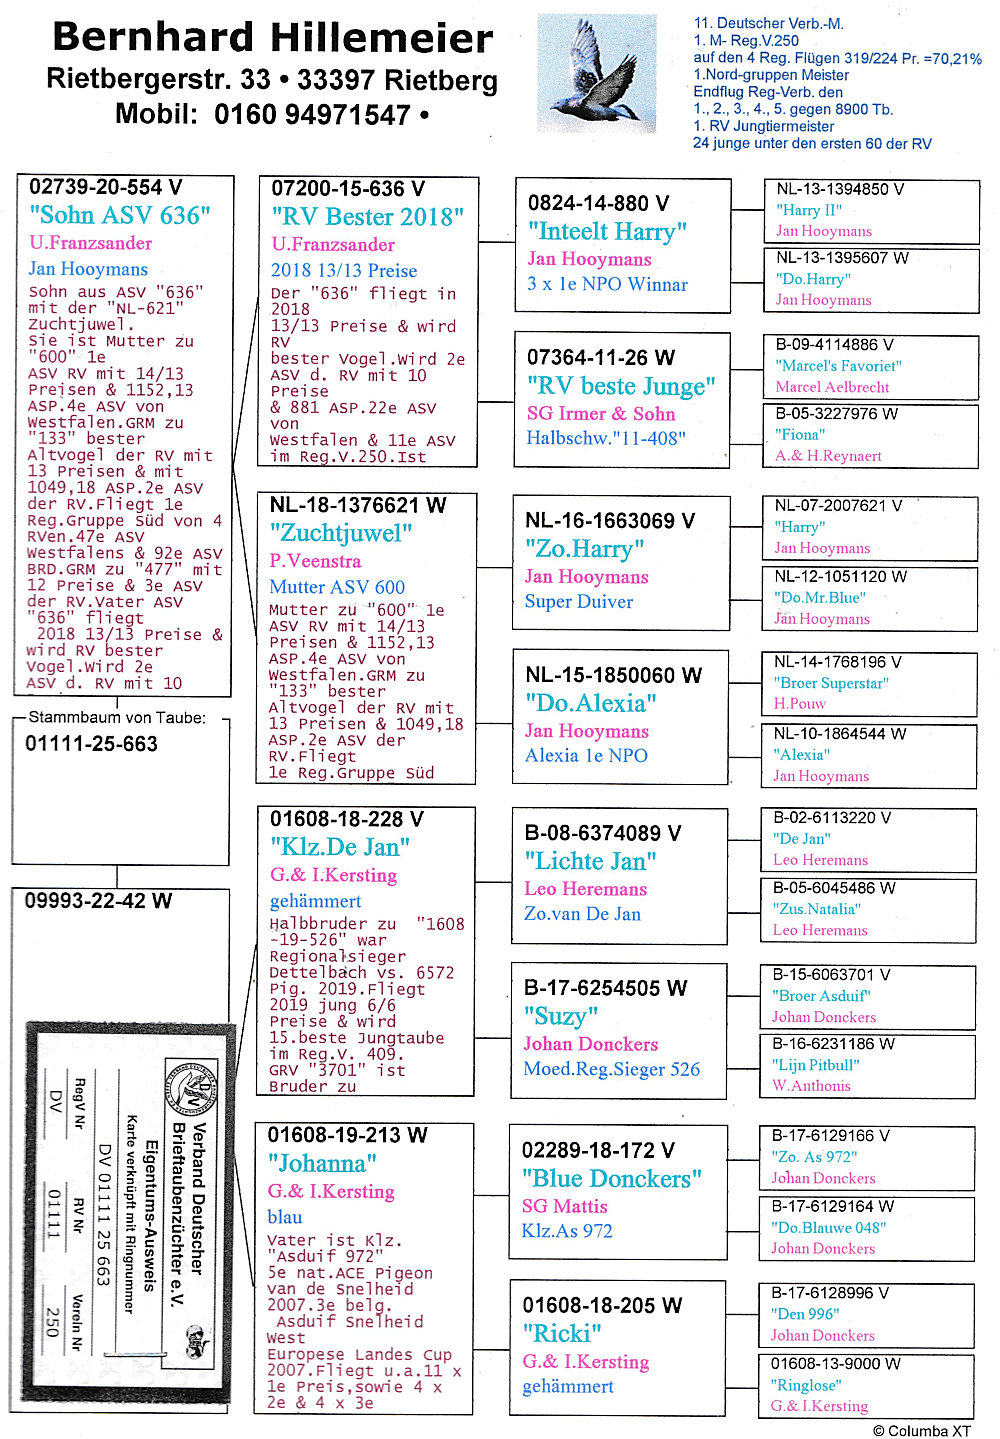 Bernhard Hillemeier
Rietbergerstr. 33 • 33397 Rietberg
Mobil: 0160 94971547 •
11. Deutscher Verb.-M.
1. M- Reg.V.250
auf den 4 Reg. Flügen 319/224 Pr. =70,21%
1.Nord-gruppen Meister
Endflug Reg-Verb. den
1., 2., 3., 4., 5. gegen 8900 Tb.
1. RV Jungtiermeister
24 junge unter den ersten 60 der RV
02739-20-554 V
"Sohn ASV 636"
U.Franzsander
Jan Hooymans
Sohn aus ASV "636"
mit der "NL-621"
Zuchtjuwel.
Sie ist Mutter zu
"600" 1e
ASV RV mit 14/13
Preisen & 1152,13
ASP.4e ASV von
Westfalen.GRM zu
"133" bester
Altvogel der RV mit
13 Preisen & mit
1049,18 ASP.2e ASV
der RV.Fliegt 1e
Reg.Gruppe Süd von 4
RVen.47e ASV
Westfalens & 92e ASV
BRD.GRM zu "477" mit
12 Preise & 3e ASV
der RV.Vater ASV
"636" fliegt
2018 13/13 Preise &
wird RV bester
Vogel.Wird 2e
ASV d. RV mit 10
Stammbaum von Taube:
01111-25-663
09993-22-42 W
Verband Deutscher
Brieftaubenzüchter e.V.
Eigentums-Ausweis
Karte verknüpft mit Ringnummer
DV 01111 25 663
RegV Nr
RV Nr
Verein Nr
DV
01111
250
07200-15-636 V
"RV Bester 2018"
U.Franzsander
2018 13/13 Preise
Der "636" fliegt in
2018
13/13 Preise & wird
RV
bester Vogel.Wird 2e
ASV d. RV mit 10
Preise
& 881 ASP.22e ASV
von
Westfalen & 11e ASV
im Reg.V.250.Ist
NL-18-1376621 W
"Zuchtjuwel"
P.Veenstra
Mutter ASV 600
Mutter zu "600" 1e
ASV RV mit 14/13
Preisen & 1152,13
ASP.4e ASV von
Westfalen.GRM zu
"133" bester
Altvogel der RV mit
13 Preisen & 1049,18
ASP.2e ASV der
RV.Fliegt
1e Reg.Gruppe Süd
01608-18-228 V
"Klz.De Jan"
G.& I.Kersting
gehämmert
Halbbruder zu "1608
-19-526" war
Regionalsieger
Dettelbach vs. 6572
Pig. 2019.Fliegt
2019 jung 6/6
Preise & wird
15.beste Jungtaube
im Reg.V. 409.
GRV "3701" ist
Bruder zu
01608-19-213 W
"Johanna"
G.& I.Kersting
blau
Vater ist Klz.
"Asduif 972"
5e nat.ACE Pigeon
van de Snelheid
2007.3e belg.
Asduif Snelheid
West
Europese Landes Cup
2007.Fliegt u.a.11 x
1e Preis,sowie 4 x
2e & 4 x 3e
0824-14-880 V
"Inteelt Harry"
Jan Hooymans
3 x 1e NPO Winnar
07364-11-26 W
"RV beste Junge"
SG Irmer & Sohn
Halbschw."11-408"
NL-16-1663069 V
"Zo.Harry"
Jan Hooymans
Super Duiver
NL-15-1850060 W
"Do.Alexia"
Jan Hooymans
Alexia 1e NPO
B-08-6374089 V
"Lichte Jan"
Leo Heremans
Zo.van De Jan
B-17-6254505 W
"Suzy"
Johan Donckers
Moed.Reg.Sieger 526
02289-18-172 V
"Blue Donckers"
SG Mattis
Klz.As 972
01608-18-205 W
"Ricki"
G.& I.Kersting
gehämmert
NL-13-1394850 V
"Harry II"
Jan Hooymans
NL-13-1395607 W
"Do.Harry"
Jan Hooymans
B-09-4114886 V
"Marcel's Favoriet"
Marcel Aelbrecht
B-05-3227976 W
"Fiona"
A.& H.Reynaert
NL-07-2007621 V
"Harry"
Jan Hooymans
NL-12-1051120 W
"Do.Mr.Blue"
Jan Hooymans
NL-14-1768196 V
"Broer Superstar"
H.Pouw
NL-10-1864544 W
"Alexia"
Jan Hooymans
B-02-6113220 V
"De Jan"
Leo Heremans
B-05-6045486 W
"Zus.Natalia"
Leo Heremans
B-15-6063701 V
"Broer Asduif"
Johan Donckers
B-16-6231186 W
"Lijn Pitbull"
W.Anthonis
B-17-6129166 V
"Zo. As 972"
Johan Donckers
B-17-6129164 W
"Do.Blauwe 048"
Johan Donckers
B-17-6128996 V
"Den 996"
Johan Donckers
01608-13-9000 W
"Ringlose"
G.& I.Kersting
© Columba XT